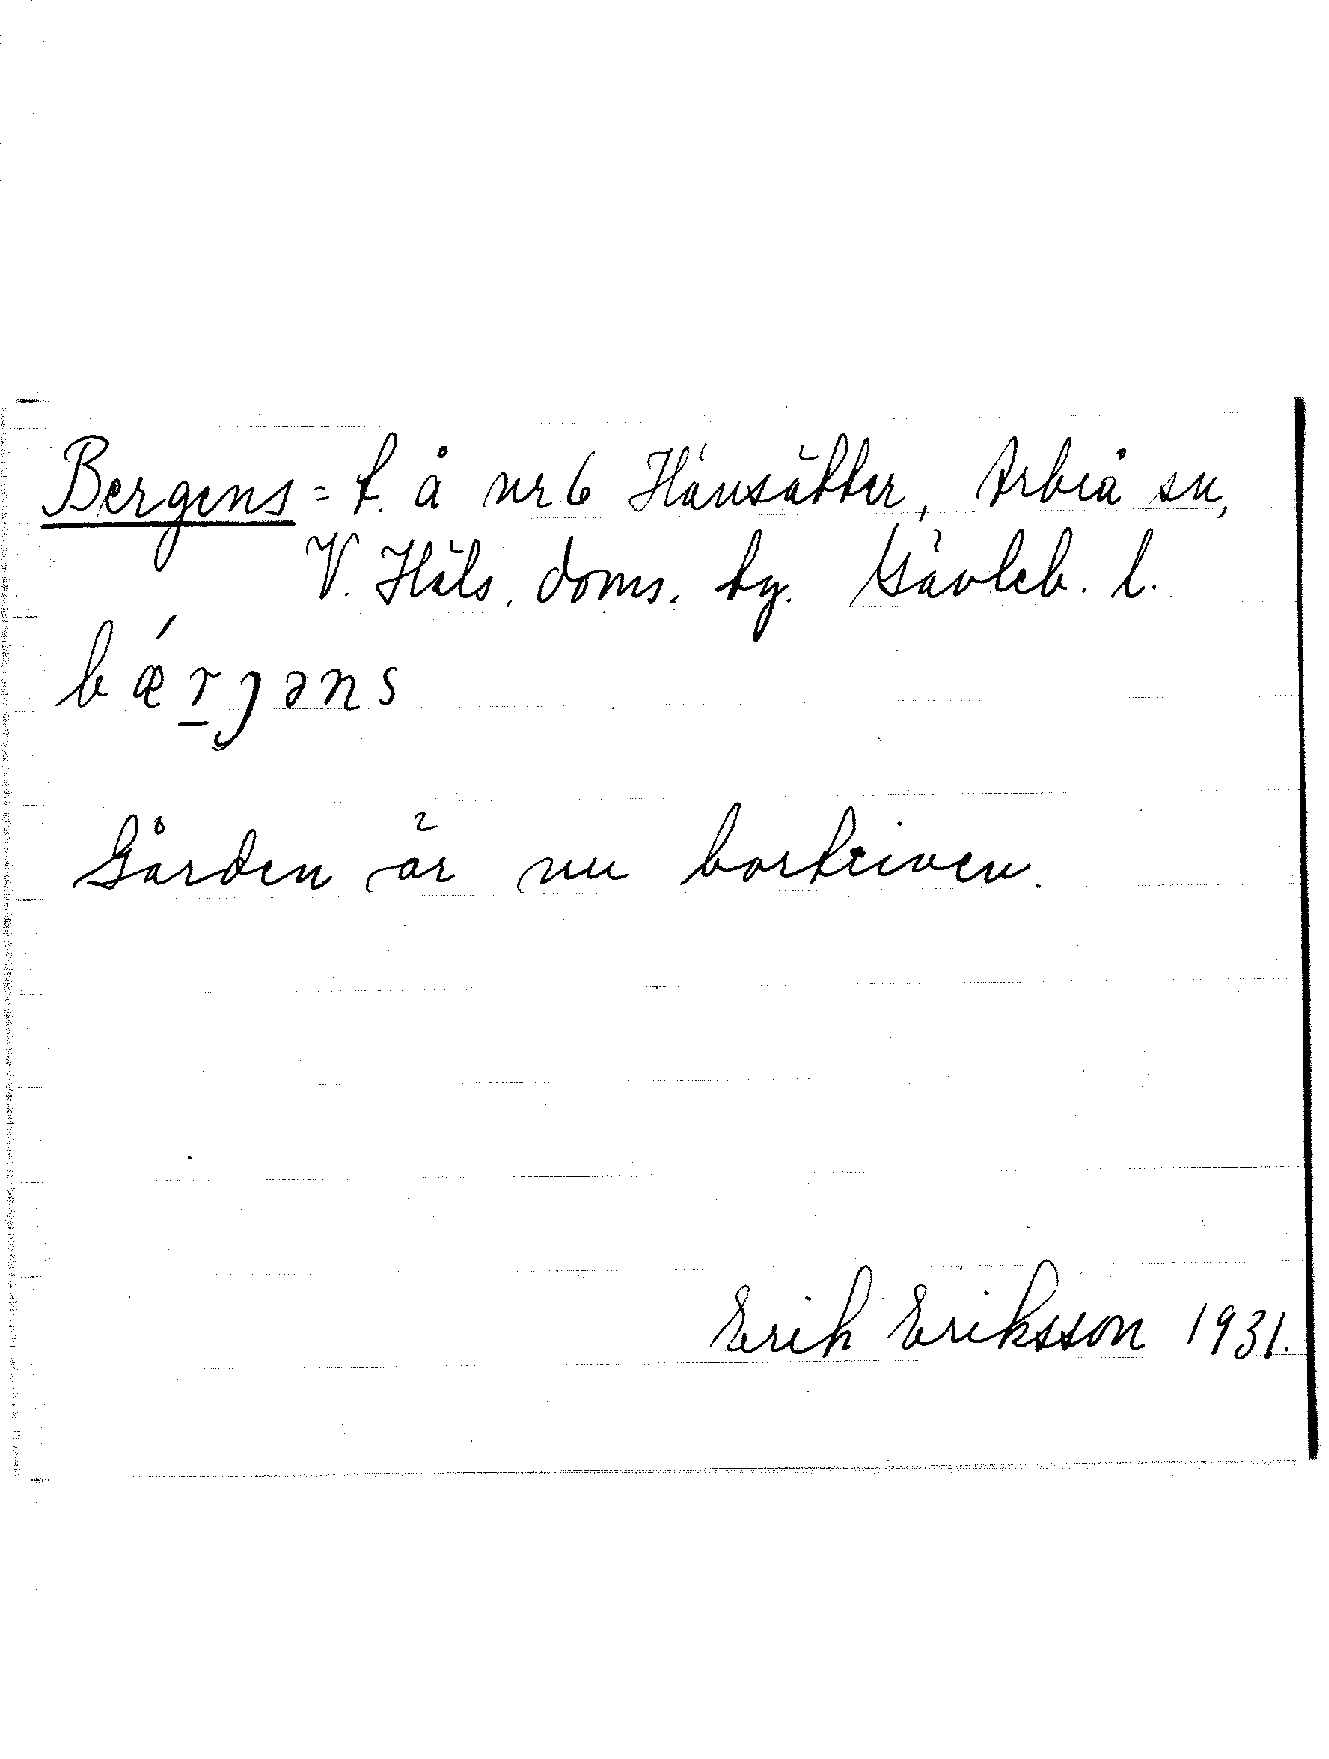 Bergens = t. å nr 6 Hänsätter, Arbrå sn,
V. Häls. doms. tg. Gävleb. l.
bǽr̠ɟəns
Gården är nu bortriven.
Erik Eriksson 1931.